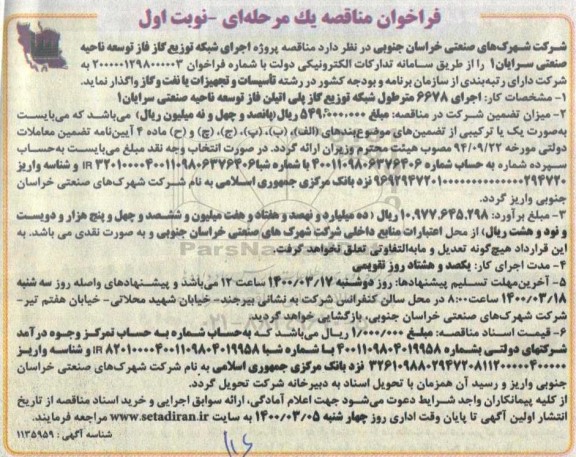 فراخوان مناقصه یك مرحله‌ای -نوبت اول
شرکت شهرک‌های صنعتی خراسان جنوبی در نظر دارد مناقصه پروژه اجرای شبکه توزیع گاز فاز توسعه ناحیه
صنعتی سرایان۱ را از طریق سامانه تدارکات الکترونیکی دولت با شماره فراخوان ۲۰۰۰۰۰۱۲۹۸۰۰۰۰۰۳ به
شرکت دارای رتبه‌بندی از سازمان برنامه و بودجه کشور در رشته تأسیسات و تجهیزات یا نفت و گاز واگذار نماید.
۱- مشخصات کار: اجرای ۶۶۷۸ مترطول شبکه توزیع گاز پلی اتیلن فاز توسعه ناحیه صنعتی سرایان۱
۲- میزان تضمین شرکت در مناقصه: مبلغ ۵۴۹،۰۰۰،۰۰۰ ریال (پانصد و چهل و نه میلیون ریال) می‌باشد که می‌بایست
به‌صورت یک یا ترکیبی از تضمین‌های موضوع بندهای (الف)، (ب)، (پ)، (ج)، (چ) و (ح) ماده ۴ آیین‌نامه تضمین معاملات
دولتی مورخه ۹۴/۰۹/۲۲ مصوب هیئت محترم وزیران ارائه گردد. در صورت انتخاب وجه نقد مبلغ می‌بایست به‌حساب
سپرده شماره به حساب شماره ۴۰۰۱۱۰۹۸۰۶۳۷۶۴۰۶ با شماره شبا IR ۳۲۰۱۰۰۰۰۴۰۰۱۱۰۹۸۰۶۳۷۶۴۰۶ و شناسه واریز
نزد بانک مرکزی جمهوری اسلامی به نام شرکت شهرک‌های صنعتی خراسان
جنوبی واریز گردد.
۳- مبلغ برآورد: ۱۰،۹۷۷،۶۴۵،۲۹۸ ریال (ده میلیارد و نهصد و هفتاد و هفت میلیون و ششصد و چهل و پنج هزار و دویست
و نود و هشت ریال) از محل اعتبارات منابع داخلی شرکت شهرک های صنعتی خراسان جنوبی و به صورت نقدی می باشد. به
این قرارداد هیچ‌گونه تعدیل و مابه‌التفاوتی تعلق نخواهد گرفت.
۴- مدت اجرای کار: یکصد و هشتاد روز تقویمی
۵- آخرین‌مهلت تسلیم پیشنهادها: روز دوشنبه ۱۴۰۰/۰۳/۱۷ ساعت ۱۲ می‌باشد و پیشنهادهای واصله روز سه شنبه
۱۴۰۰/۰۳/۱۸ ساعت ۸:۰۰ در محل سالن کنفرانس شرکت به نشانی بیرجند- خیابان شهید محلاتی- خیابان هفتم تیر-
شرکت شهرک‌های صنعتی خراسان جنوبی، بازگشایی خواهد گردید.
۶- قیمت اسناد مناقصه: مبلغ ۱/۰۰۰/۰۰۰ ریال می‌باشد که به حساب شماره به حساب تمرکز وجوه درآمد
شرکتهای دولتی بشماره ۴۰۰۱۱۰۹۸۰۴۰۱۹۹۵۸ با شماره شبا IR ۸۲۰۱۰۰۰۰۴۰۰۱۱۰۹۸۰۴۰۱۹۹۵۸ و شناسه واریز
نزد بانک مرکزی جمهوری اسلامی به نام شرکت شهرک‌های صنعتی خراسان
جنوبی واریز و رسید آن همزمان با تحویل اسناد به دبیرخانه شرکت تحویل گردد.
از کلیه پیمانکاران واجد شرایط دعوت می‌شود جهت اعلام آمادگی، ارائه سوابق اجرایی و خرید اسناد مناقصه از تاریخ
انتشار اولین آگهی تا پایان وقت اداری روز چهار شنبه ۱۴۰۰/۰۳/۰۵ به سایت www.setadiran.ir مراجعه فرمایند.
شناسه آگهی : ۱۱۳۵۹۵۹